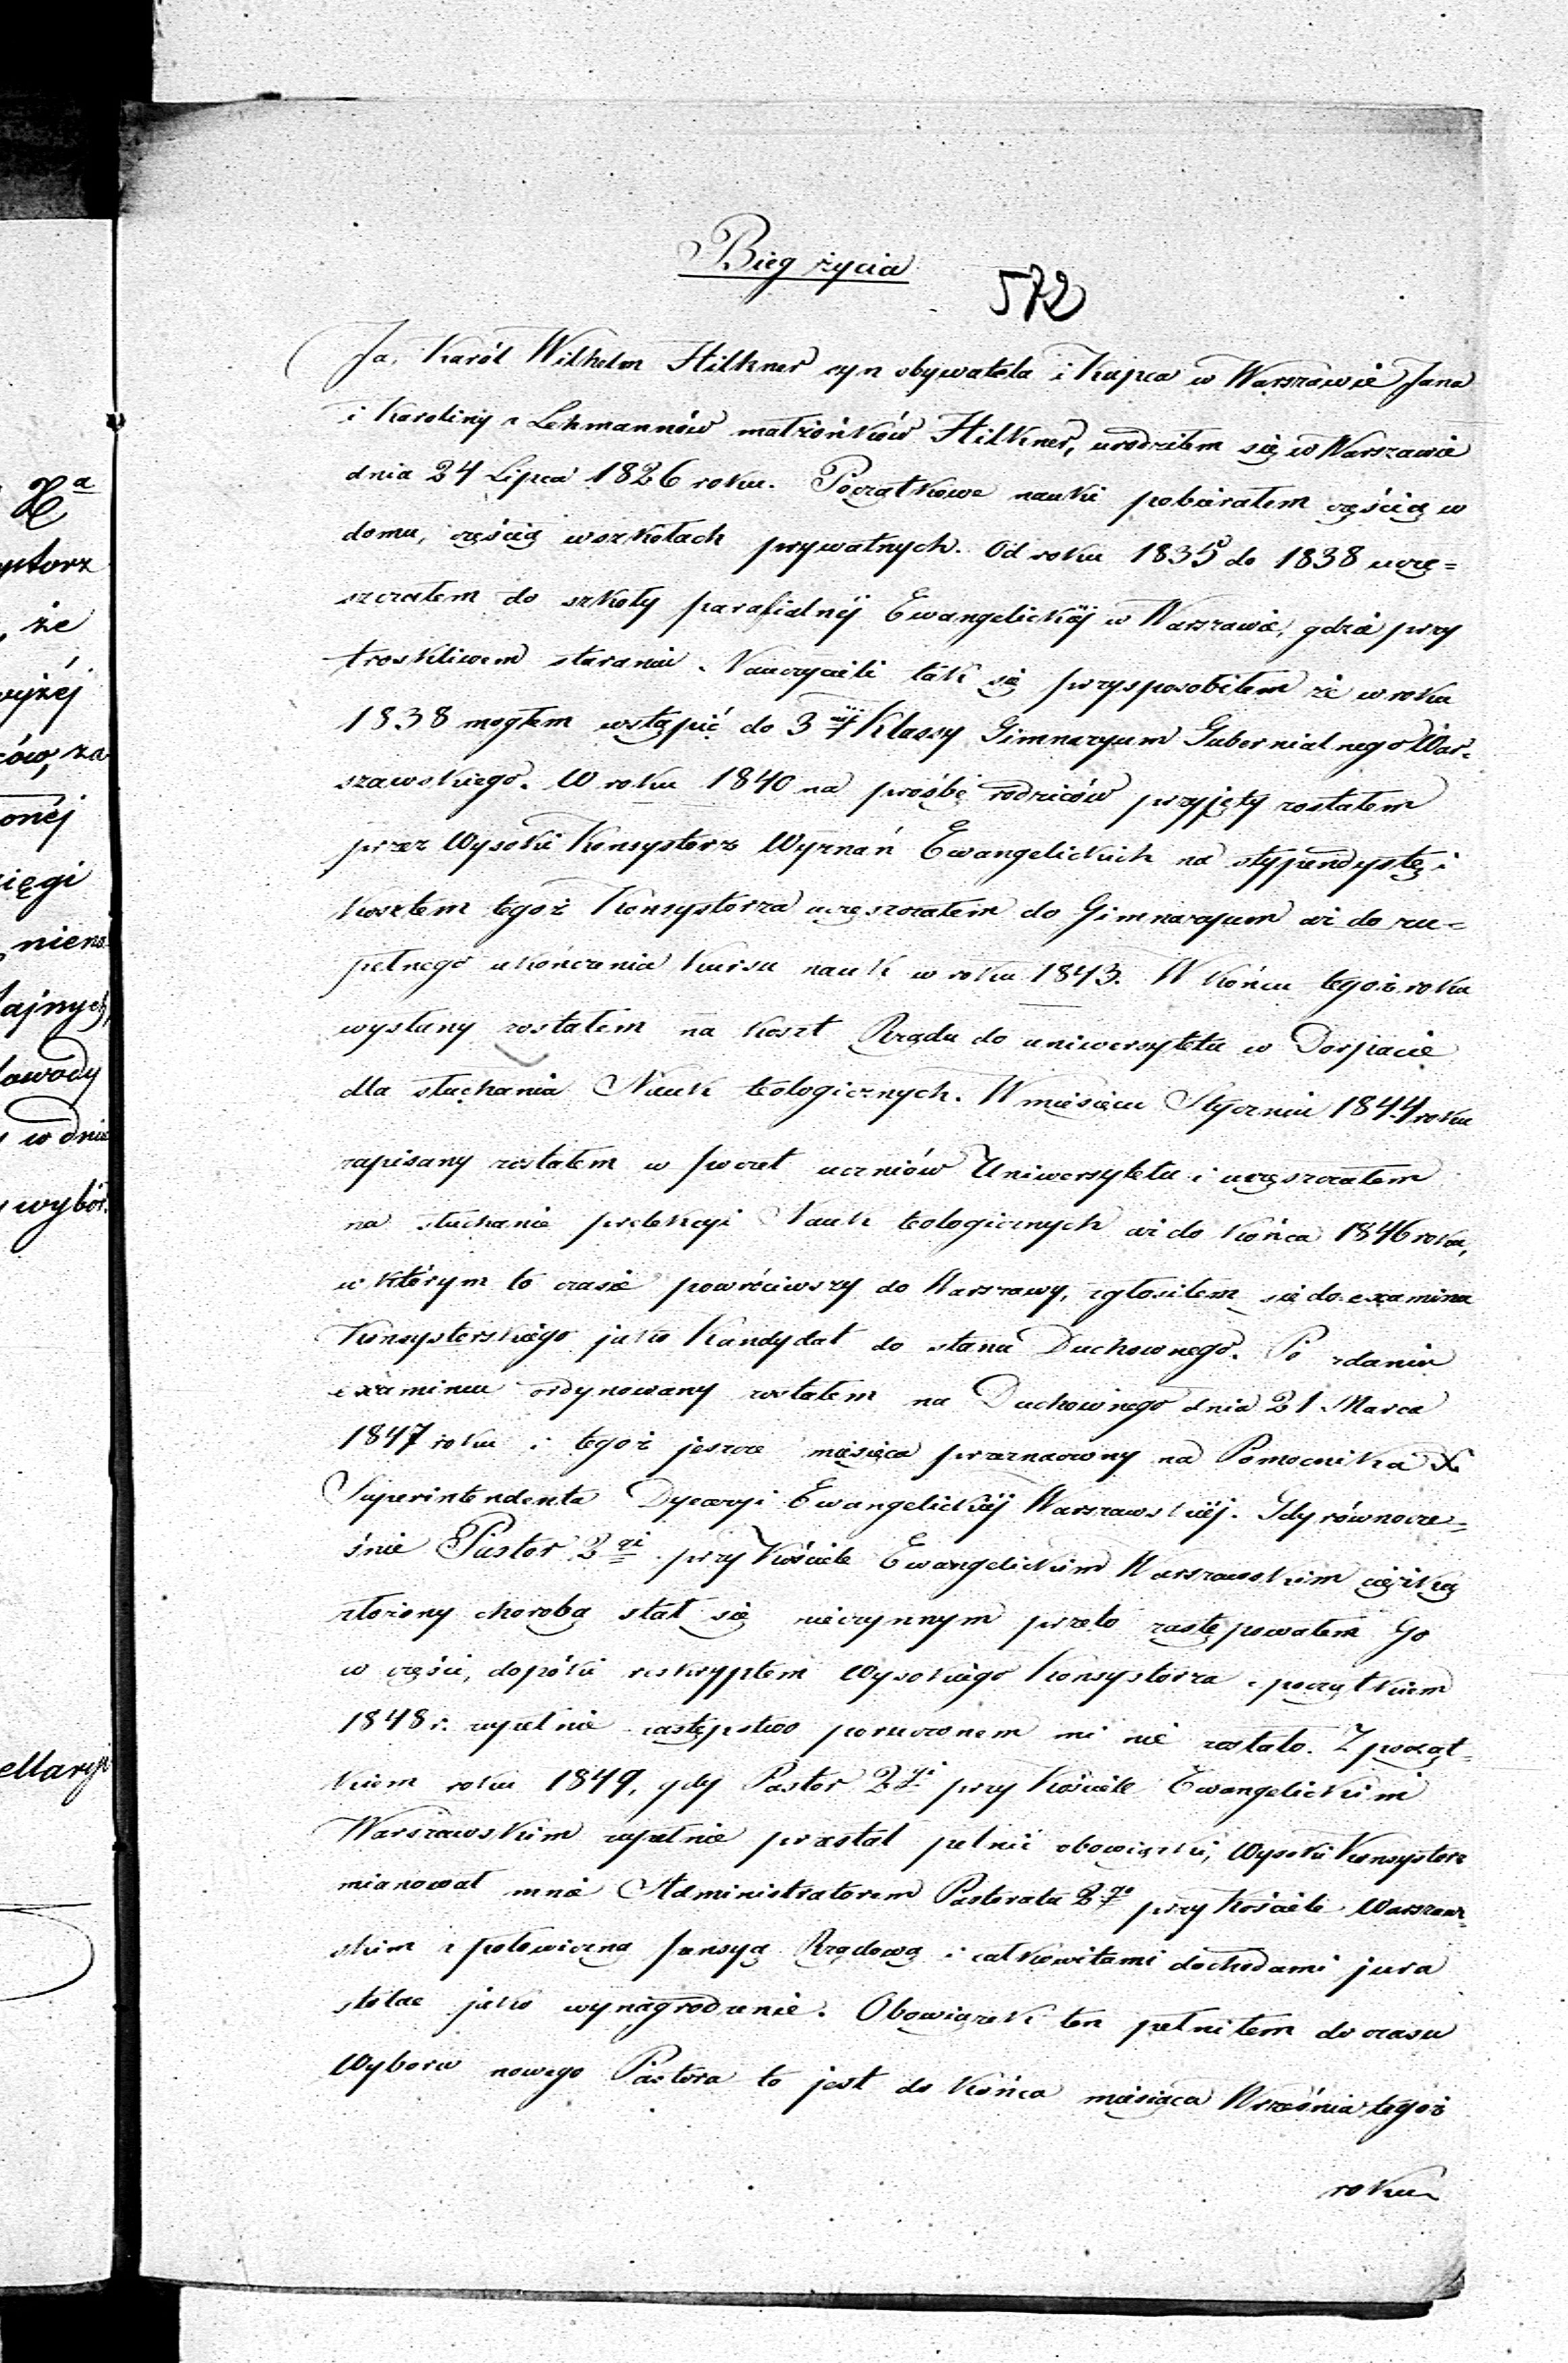 Bieg życia
572
Ja, Karól Wilhelm Hilkner syn obywatela i Kupca w Warszawie Jana
i Karoliny z Lehmannów małżonków Hilkner, urodziłem się w Warszawie
dnia 24 Lipca 1826 roku. Początkowe nauki pobierałem częścią w
domu, częścią w szkołach prywatnych. Od roku 1835 do 1838 uczę=
szczałem do szkoły parafialnéj Ewangelickiéj w Warszawie, gdzie przy
troskliwem staraniu Nauczycieli tak się przysposobiłem że w roku
1838 mogłem wstąpić do 3éj Klassy Gimnazyum Gubernialnego War=
szawskiego. W roku 1840 na prośbę rodziców przyjęty zostałem
przez Wysoki Konsystorz Wyznań Ewangelickich na stypendystę i
kosztem tegoż Konsystorza uczęszczałem do Gimnazyum aż do zu=
pełnego ukończenia kursu nauk w roku 1843. W końcu tegoż roku
wysłany zostałem na koszt Rządu do uniwersytetu w Dorpacie
dla słuchania Nauk teologicznych. W miesiącu Styczniu 1844 roku
zapisany zostałem w poczet uczniów Uniwersytetu i uczęszczałem
na słuchanie prelekcji Nauk teologicznych aż do końca 1846 roku,
w którym to czasie powróciwszy do Warszawy, zgłosiłem się do examinu
Konsystorskiego jako Kandydat do stanu Duchownego. Po zdaniu
examinu ordynowany zostałem na Duchownego dnia 21 Marca
1847 roku i tegoż jeszcze miesiąca przeznaczony na Pomocnika X.
Superintendenta Dyecezyi Ewangelickiéj Warszawskiéj. Gdy równocze=
śnie Pastor 2gi przy Kościele Ewangelickim Warszawskim ciężką
złożony chorobą stał się nieczynnym przeto zastępowałem Go
w części, dopóki reskryptem Wysokiego Konsystorza z początkiem
1848 r. zupełnie zastępstwo poruczonem mi nie zostało. Z począt=
kiem roku 1849, gdy Pastor 2gi przy Kościele Ewangelickim
Warszawskim zupełnie przestał pełnić obowiązki, Wysoki Konsystorz
mianował mnie Administratorem Pastoratu 2go przy Kościele Warszaw=
skim z połowiczną pensyą Rządową i całkowitemi dochodami jura
stolae jako wynagrodzenie. Obowiązek ten pełniłem do czasu
Wyboru nowego Pastora to jest do końca miesiąca Września tegoż
roku
ystorz
, że
wyżéj
ców, za
onéj
ięgi
ajnych
dowody
w dniu
wybór.
ellaryi